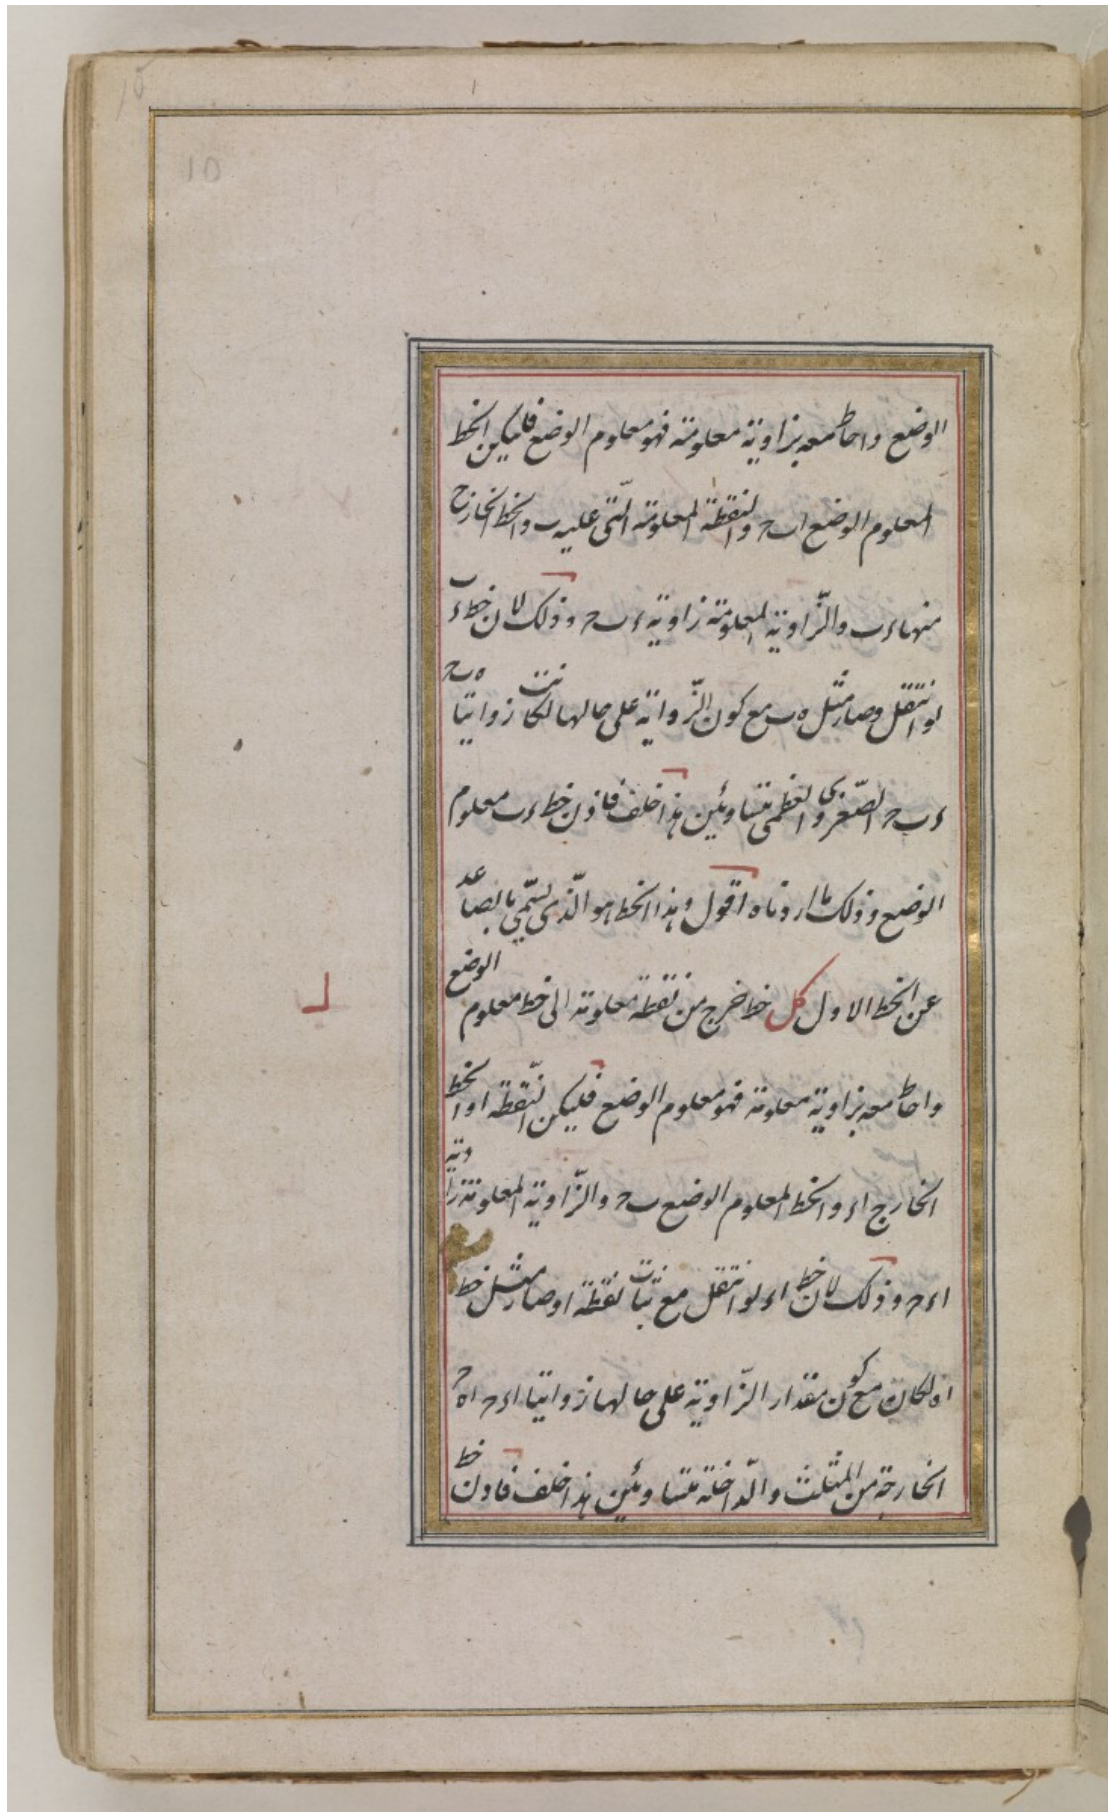 الوضع واحاط معه بزاوية معلومة فهو معلوم الوضع فليكن الخط
المعلوم الوضع اب‍ح والنقطة المعلومة الّتى عليه ب والخط الخارج
منها ءب والزّاوية المعلومة زاوية ءب‍ح وذلك لان خط ءب
لو انتقل وصار مثل هب مع كون الزّواية على حالها لكانت زوايتا هب‍ح
ءب‍ح الصّغرى والعظمى متساوئين هذا خلف فاذن خط ءب معلوم
الوضع وذلك ما اردناه اقول وهذا الخط هو الّذى يسّمى بالصاعد
عن الخط الاول كل خط خرج من نقطة معلومة الى خط معلوم الوضع
واحاط معه بزاوية معلومة فهو معلوم الوضع فليكن النّقطة ا والخط
الخارج اء والخط المعلوم الوضع ب‍ح والزّاوية المعلومة زاوية
اءح وذلك لان خط اء لو انتقل مع ثبات نقطة ا وصار مثل خط
اه لكان مع كون مقدار الزّاوية على حالها زوايتا اءح اه‍ح
الخارجة من المثلث والدّاخلة متساوئين هذا خلف فاذن خط
ل
10
15